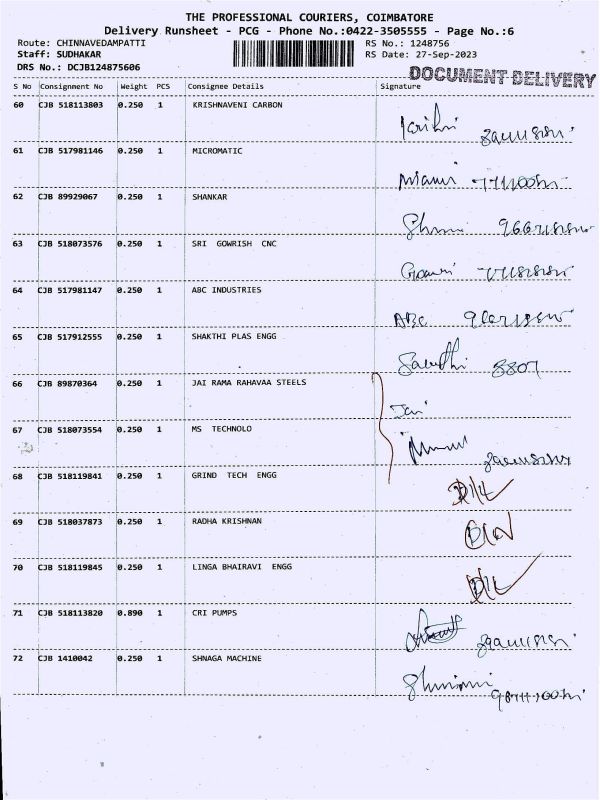 THE PROFESSIONAL COURIERS, COIMBATORE
Delivery Runsheet - PCG - Phone No.:0422-3505555 - Page No.:6
Route: CHINNAVEDAMPATTI RS No.: 1248756
Staff: SUDHAKAR RS Date: 27-Sep-2023
DRS No.: DCJB124875606 DOCUMENT DELIVERY
S No Consignment No Weight PCS Consignee Details Signature
60 CJB 518113803 0.250 1 KRISHNAVENI CARBON
61 CJB 517981146 0.250 1 MICROMATIC
62 CJB 89929067 0.250 1 SHANKAR
63 CJB 518073576 0.250 1 SRI GOWRISH CNC
64 CJB 517981147 0.250 1 ABC INDUSTRIES
ABC
65 CJB 517912555 0.250 1 SHAKTHI PLAS ENGG
8807
66 CJB 89870364 0.250 1 JAI RAMA RAHAVAA STEELS
Jai
67 CJB 518073554 0.250 1 MS TECHNOLO
68 CJB 518119841 0.250 1 GRIND TECH ENGG
69 CJB 518037873 0.250 1 RADHA KRISHNAN
70 CJB 518119845 0.250 1 LINGA BHAIRAVI ENGG
71 CJB 518113820 0.890 1 CRI PUMPS
72 CJB 1410042 0.250 1 SHNAGA MACHINE